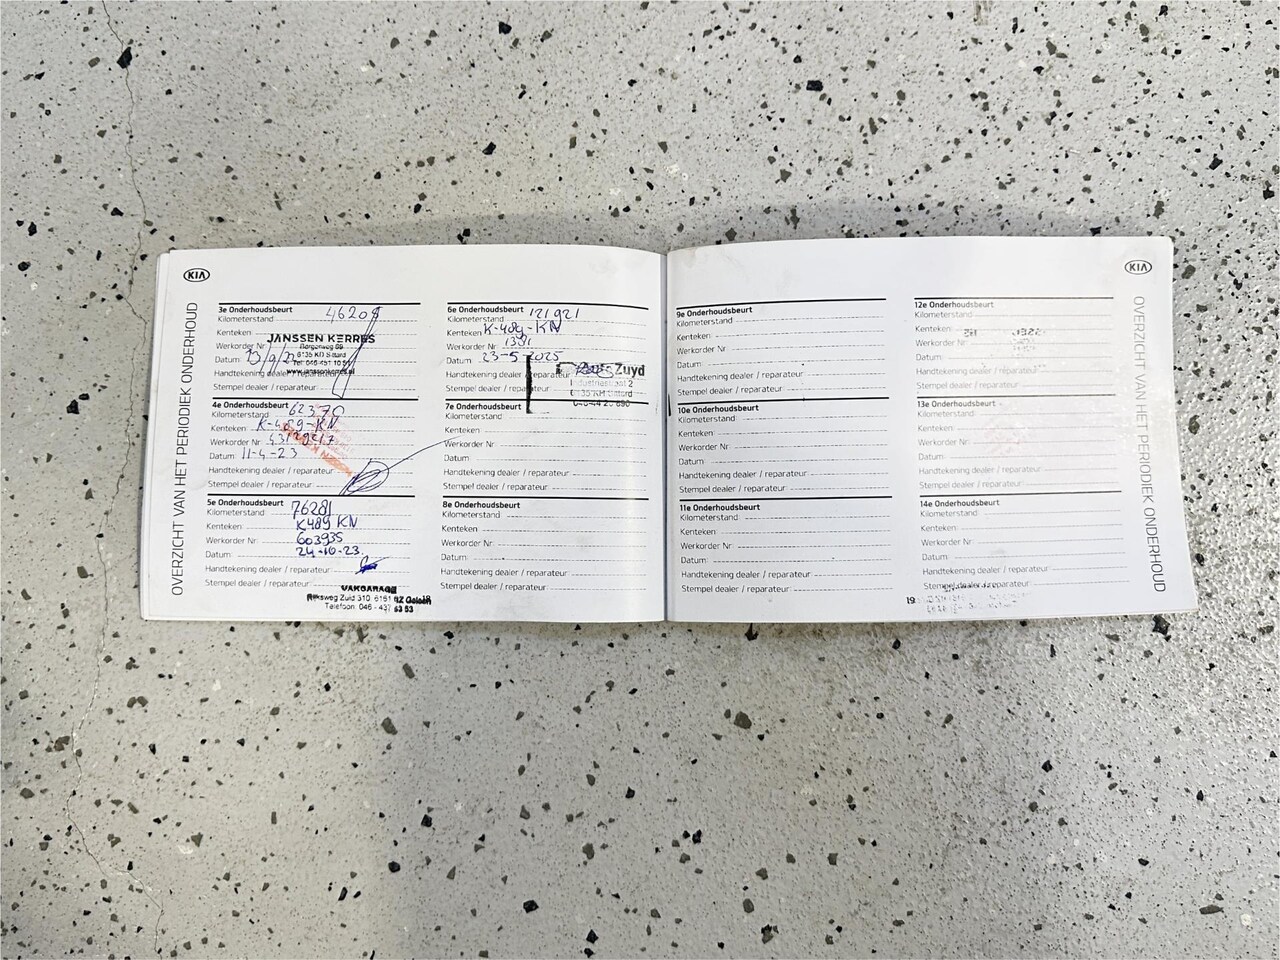 KIA
OVERZICHT VAN HET PERIODIEK ONDERHOUD
3e Onderhoudsbeurt
Kilometerstand 46209
Kenteken:
JANSSEN KERRES
Werkorder Nr:
6135 KD Sittard
Datum: 13/9/22
Tel: 046-451 10
www.janssenkerres.nl
Handtekening dealer / reparateur:
Stempel dealer / reparateur:
4e Onderhoudsbeurt
Kilometerstand 62370
Kenteken: K-489-KN
Werkorder Nr:
Datum: 11-4-23
Handtekening dealer / reparateur:
Stempel dealer / reparateur:
5e Onderhoudsbeurt
Kilometerstand 76281
Kenteken: K489 KN
Werkorder Nr: 603935
Datum: 24-10-23
Handtekening dealer / reparateur:
Stempel dealer / reparateur:
VAKGARAGE
Rijksweg Zuid 310, 6161 BZ Geleen
Telefoon: 046 - 437 63 53
18
6e Onderhoudsbeurt
Kilometerstand 121921
Kenteken K-489-KN
Werkorder Nr: 1391
Datum: 23-5-2025
Handtekening dealer / reparateur:
Zuyd
Stempel dealer / reparateur:
Industriestraat 2
6135 KH Sittard
7e Onderhoudsbeurt
Kilometerstand
Kenteken:
Werkorder Nr:
Datum:
Handtekening dealer / reparateur:
Stempel dealer / reparateur:
8e Onderhoudsbeurt
Kilometerstand
Kenteken:
Werkorder Nr:
Datum:
Handtekening dealer / reparateur:
Stempel dealer / reparateur:
9e Onderhoudsbeurt
Kilometerstand
Kenteken:
Werkorder Nr:
Datum:
Handtekening dealer / reparateur:
Stempel dealer / reparateur:
10e Onderhoudsbeurt
Kilometerstand
Kenteken:
Werkorder Nr:
Datum:
Handtekening dealer / reparateur:
Stempel dealer / reparateur:
11e Onderhoudsbeurt
Kilometerstand
Kenteken:
Werkorder Nr:
Datum:
Handtekening dealer / reparateur:
Stempel dealer / reparateur:
12e Onderhoudsbeurt
Kilometerstand
Kenteken:
Werkorder Nr:
Datum:
Handtekening dealer / reparateur:
Stempel dealer / reparateur:
13e Onderhoudsbeurt
Kilometerstand
Kenteken:
Werkorder Nr:
Datum:
Handtekening dealer / reparateur:
Stempel dealer / reparateur:
14e Onderhoudsbeurt
Kilometerstand
Kenteken:
Werkorder Nr:
Datum:
Handtekening dealer / reparateur:
Stempel dealer / reparateur:
19
KIA
OVERZICHT VAN HET PERIODIEK ONDERHOUD